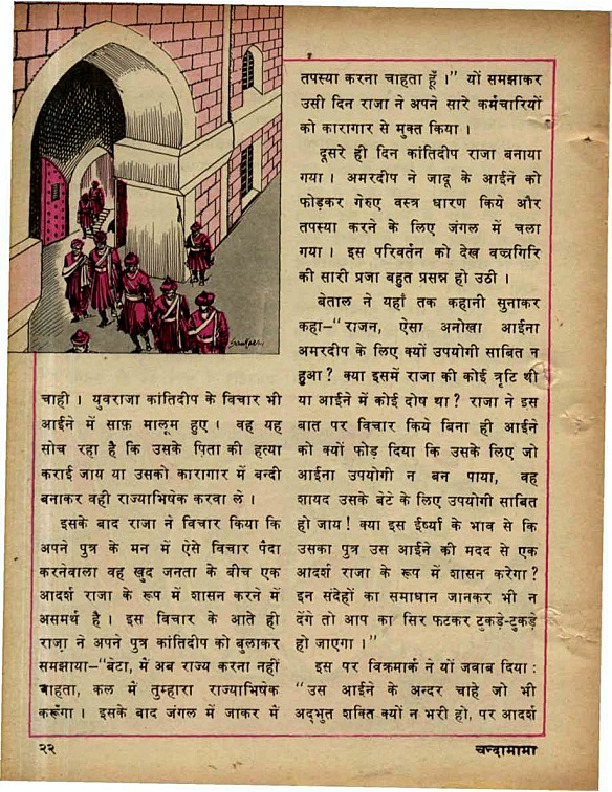 चाही । युवराजा कांतिदीप के विचार भी
आईने में साफ़ मालूम हुए । वह यह
सोच रहा है कि उसके पिता की हत्या
कराई जाय या उसको कारागार में बन्दी
बनाकर वही राज्याभिषेक करवा ले ।
इसके बाद राजा ने विचार किया कि
अपने पुत्र के मन में ऐसे विचार पैदा
करनेवाला वह खुद जनता के बीच एक
आदर्श राजा के रूप में शासन करने में
असमर्थ है । इस विचार के आते ही
राजा ने अपने पुत्र कांतिदीप को बुलाकर
समझाया—"बेटा, में अब राज्य करना नहीं
चाहता, कल में तुम्हारा राज्याभिषेक
करूँगा । इसके बाद जंगल में जाकर में
तपस्या करना चाहता हूँ ।" यों समझाकर
उसी दिन राजा ने अपने सारे कर्मचारियों
को कारागार से मुक्त किया ।
दूसरे ही दिन कांतिदीप राजा बनाया
गया । अमरदीप ने जादू के आईने को
फोड़कर गेरुए वस्त्र धारण किये और
तपस्या करने के लिए जंगल में चला
गया । इस परिवर्तन को देख वज्रगिरि
की सारी प्रजा बहुत प्रसन्न हो उठी ।
बेताल ने यहाँ तक कहानी सुनाकर
कहा—"राजन, ऐसा अनोखा आईना
अमरदीप के लिए क्यों उपयोगी साबित न
हुआ ? क्या इसमें राजा की कोई त्रृटि थी
या आईने में कोई दोष था ? राजा ने इस
बात पर विचार किये बिना ही आईने
को क्यों फोड़ दिया कि उसके लिए जो
आईना उपयोगी न बन पाया, वह
शायद उसके बेटे के लिए उपयोगी साबित
हो जाय ! क्या इस ईर्ष्या के भाव से कि
उसका पुत्र उस आईने की मदद से एक
आदर्श राजा के रूप में शासन करेगा ?
इन संदेहों का समाधान जानकर भी न
देंगे तो आप का सिर फटकर टुकड़े-टुकड़े
हो जाएगा ।"
इस पर विक्रमार्क ने यों जवाब दिया :
"उस आईने के अन्दर चाहे जो भी
अद्भुत शक्ति क्यों न भरी हो, पर आदर्श
२२
चन्दामामा